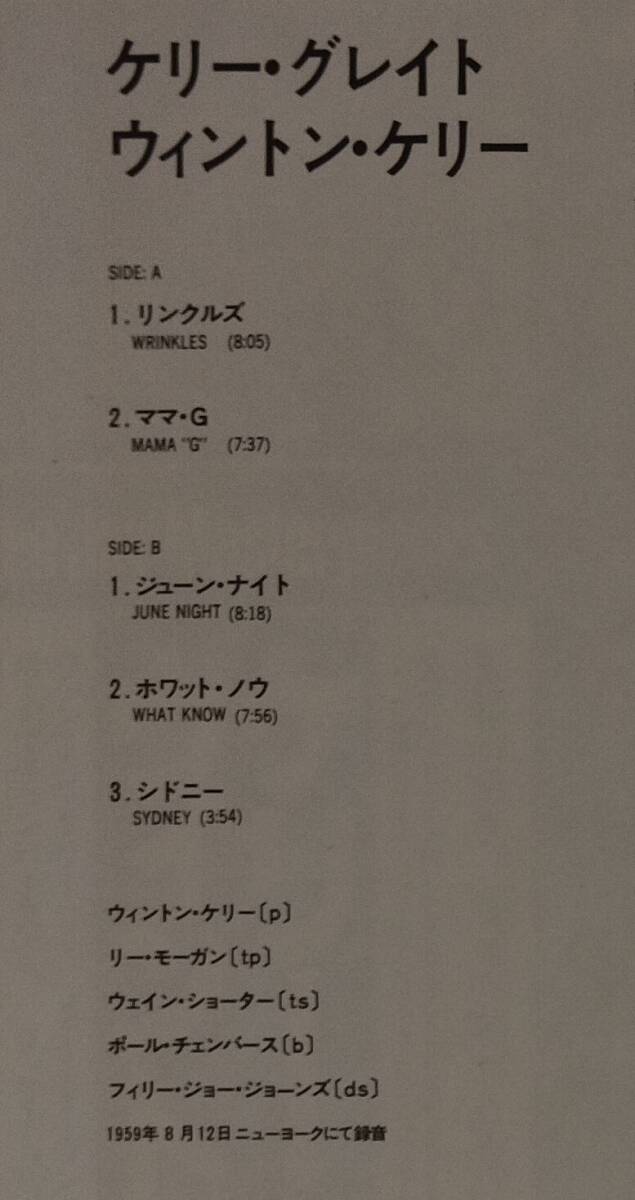 ケリー・グレイト
ウィントン・ケリー
SIDE: A
1. リンクルズ
WRINKLES (8:05)
2. ママ・G
MAMA "G" (7:37)
SIDE: B
1. ジューン・ナイト
JUNE NIGHT (8:18)
2. ホワット・ノウ
WHAT KNOW (7:56)
3. シドニー
SYDNEY (3:54)
ウィントン・ケリー〔p〕
リー・モーガン〔tp〕
ウェイン・ショーター〔ts〕
ポール・チェンバース〔b〕
フィリー・ジョー・ジョーンズ〔ds〕
1959年8月12日ニューヨークにて録音